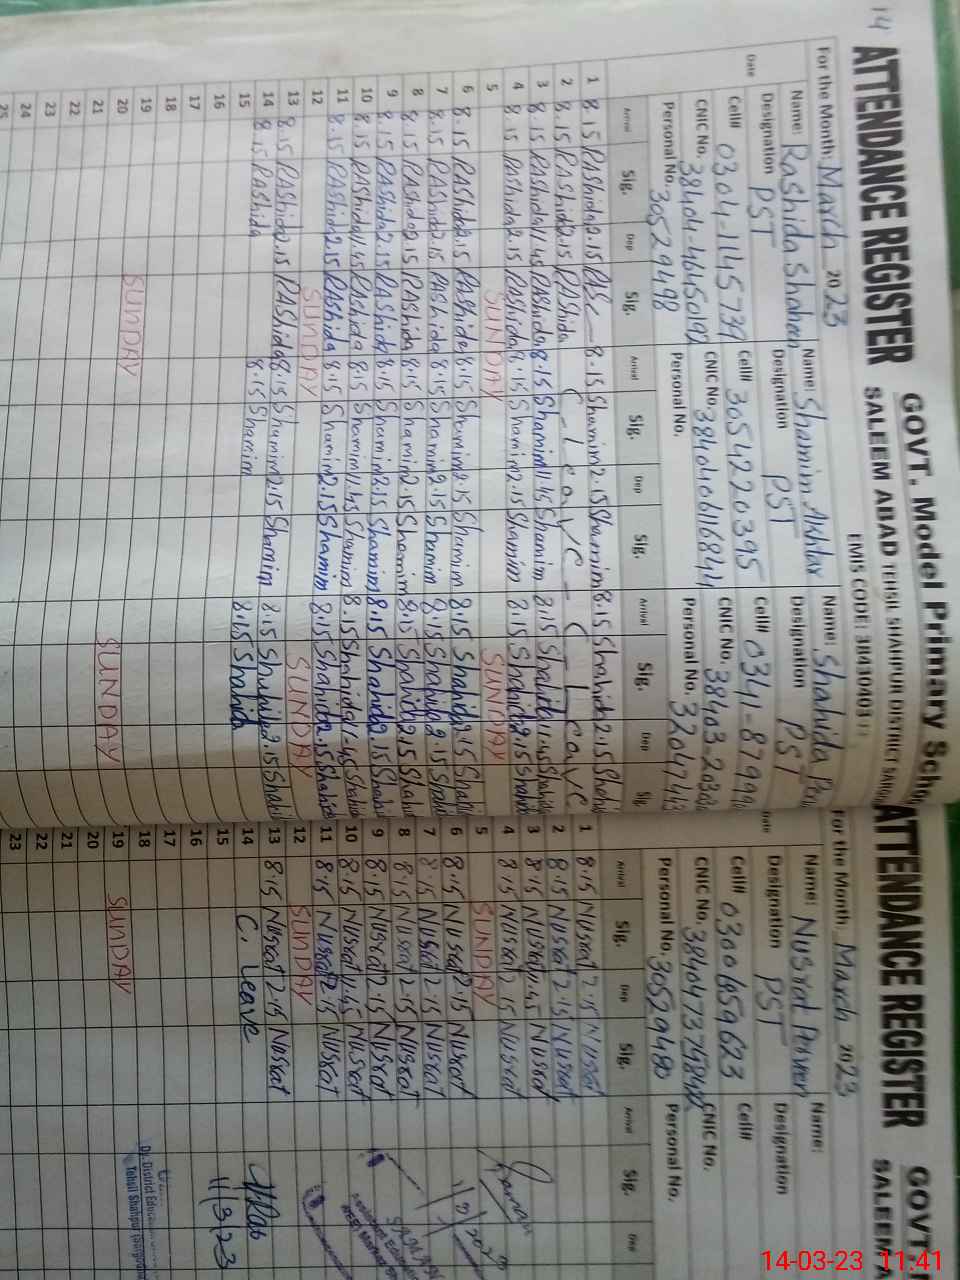 14
ATTENDANCE REGISTER
GOVT. Model Primary Scho
SALEEM ABAD TEHSIL SHAHPUR DISTRICT SARGO
EMIS CODE: 38430403
For the Month: March 2023
Name: Rashida Shaheen
Designation PST
Cell# 0304-1145739
CNIC No. 38404-4645019
Personal No. 30529498
Name: Shamim Akhtar
Designation PST
Cell# 3054220395
CNIC No.
Personal No.
Name: Shahida
Designation PST
Cell# 0341-87999
CNIC No. 38403-2030
Personal No. 3204741
Date Arrival Sig. Dep Sig. Arrival Sig. Dep Sig. Arrival Sig. Dep Sig
1 8.15 Rashida 2.15 RAS 8.15 Shamim 2.15 Shamim 8.15 Shahida 2.15 Shahi
2 8.15 RAshida 2.15 RAshida C-Leave - C-Leave
3 8.15 RAshida 11.45 RAshida 8.15 Shamim 11.45 Shamim 8.15 Shahida 11.45 Shahid
4 8.15 RAshida 2.15 RAshida 8.15 Shamim 2.15 Shamim 8.15 Shahida 2.15 Shahid
5 SUNDAY SUNDAY
6 8.15 RAshida 2.15 RAshida 8.15 Shamim 2.15 Shamim 8.15 Shahida 2.15 Shahi
7 8.15 RAshida 2.15 RAshida 8.15 Shamim 2.15 Shamim 8.15 Shahida 2.15 Shahi
8 8.15 RAshida 2.15 RAshida 8.15 Shamim 2.15 Shamim 8.15 Shahida 2.15 Shahi
9 8.15 RAshida 2.15 RAshida 8.15 Shamim 2.15 Shamim 8.15 Shahida 2.15 Shahi
10 8.15 RAshida 11.45 RAshida 8.15 Shamim 11.45 Shamim 8.15 Shahida 11.45 Shahi
11 8.15 RAshida 2.15 RAshida 8.15 Shamim 2.15 Shamim 8.15 Shahida 2.15 Shahid
12 SUNDAY SUNDAY
13 8.15 RAshida 2.15 RAshida 8.15 Shamim 2.15 Shamim 8.15 Shahida 2.15 Shahi
14 8.15 RAshida 8.15 Shamim 8.15 Shahida
15
16
17
18
19 SUNDAY SUNDAY
20
21
22
23
24
25
ATTENDANCE REGISTER
GOVT.
SALEEM A
For the Month: March 2023
Name: Nusrat Perveen
Designation PST
Cell# 03001659623
CNIC No.
Personal No. 30529480
Name:
Designation
Cell#
CNIC No.
Personal No.
Date Arrival Sig. Dep Sig. Arrival Sig. Dep
1 8.15 Nusrat 2.15 Nusrat
2 8.15 Nusrat 2.15 Nusrat
3 8.15 Nusrat 11.45 Nusrat
4 8.15 Nusrat 2.15 Nusrat
5 SUNDAY
6 8.15 Nusrat 2.15 Nusrat
7 8.15 Nusrat 2.15 Nusrat
8 8.15 Nusrat 2.15 Nusrat
9 8.15 Nusrat 2.15 Nusrat
10 8.15 Nusrat 11.45 Nusrat
11 8.15 Nusrat 2.15 Nusrat
12 SUNDAY
13 8.15 Nusrat 2.15 Nusrat
14 C. Leave
15
16
17
18
19 SUNDAY
20
21
22
23
11/3/23
Dy. District Education
Tehsil Shahpur (Sargodha
14-03-23 11:41